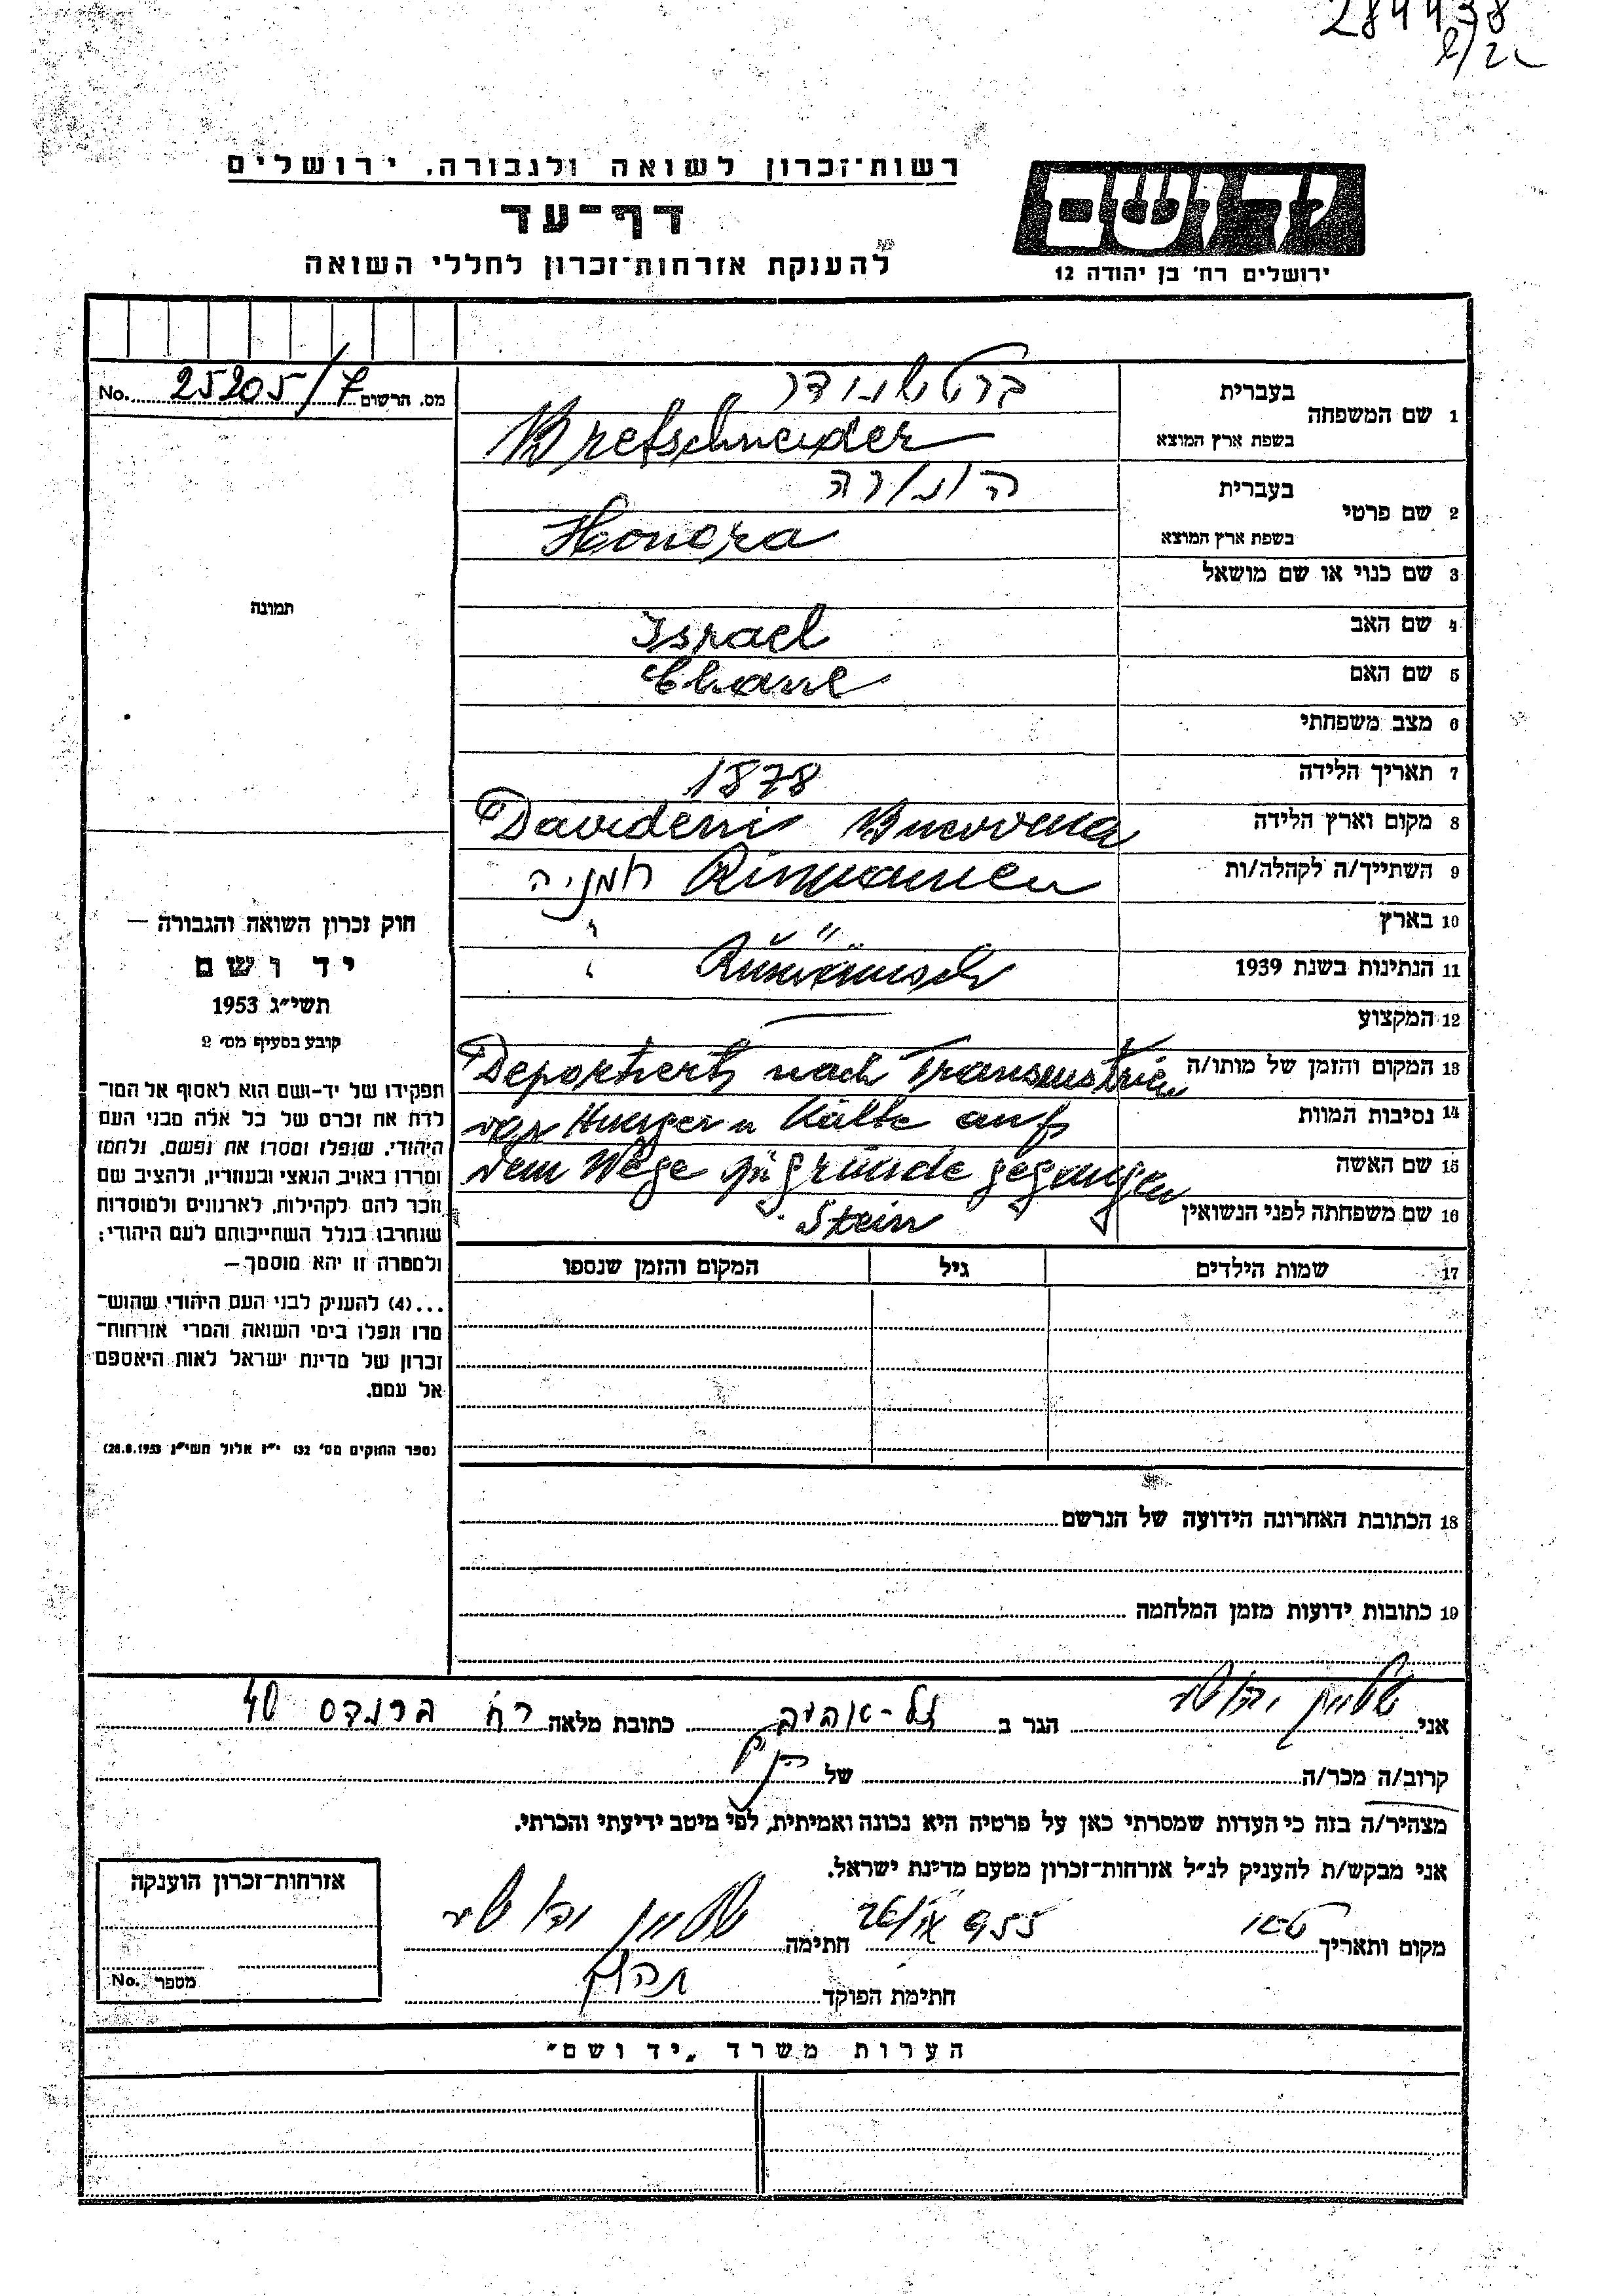 284438
רשות־זכרון לשואה ולגבורה, ירושלים
דף־עד
להענקת אזרחות־זכרון לחללי השואה
יד ושם
ירושלים רח׳ בן יהודה 12
No. 25205/7 מס. הרשום
תמונה
1 שם המשפחה בעברית ברטשנידר
בשפת ארץ המוצא Bretschneider
2 שם פרטי בעברית הונורה
בשפת ארץ המוצא Honora
3 שם כנוי או שם מושאל
4 שם האב Israel
5 שם האם Chane
6 מצב משפחתי
7 תאריך הלידה 1878
8 מקום וארץ הלידה Davideni Bucovena
9 השתייך/ה לקהלה/ות Rumanien רומניה
10 בארץ " "
11 הנתינות בשנת 1939 Rumänisch "
12 המקצוע —
13 המקום והזמן של מותו/ה Deportiert nach Transnistrien
14 נסיבות המוות vor Hunger u Kälte auf
15 שם האשה dem Wege zu grunde gegangen
16 שם משפחתה לפני הנשואין Stein
17 שמות הילדים גיל המקום והזמן שנספו
18 הכתובת האחרונה הידועה של הנרשם
19 כתובות ידועות מזמן המלחמה
חוק זכרון השואה והגבורה —
יד ושם
תשי״ג 1953
קובע בסעיף מס׳ 2
תפקידו של יד־ושם הוא לאסוף אל המו־
לדת את זכרם של כל אלה מבני העם
היהודי, שנפלו ומסרו את נפשם, נלחמו
ומרדו באויב הנאצי ובעוזריו, ולהציב שם
וזכר להם לקהילות, לארגונים ולמוסדות
שנחרבו בגלל השתייכותם לעם היהודי;
ולמטרה זו יהא מוסמך—
...(4) להעניק לבני העם היהודי שהוש־
מדו ונפלו בימי השואה והמרי אזרחות־
זכרון של מדינת ישראל לאות היאספם
אל עמם.
(ספר החוקים מס׳ 132 י״ז אלול תשי״ג 28.8.1953)
אני שטיין הגר ב תל-אביב כתובת מלאה רח׳ ברנדס 40
קרוב/ה מכר/ה של
מצהיר/ה בזה כי העדות שמסרתי כאן על פרטיה היא נכונה ואמיתית, לפי מיטב ידיעתי והכרתי.
אני מבקש/ת להעניק לנ״ל אזרחות־זכרון מטעם מדינת ישראל.
מקום ותאריך 955 חתימה שטיין
חתימת הפוקד
אזרחות־זכרון הוענקה
No. מספר
הערות משרד „יד ושם״